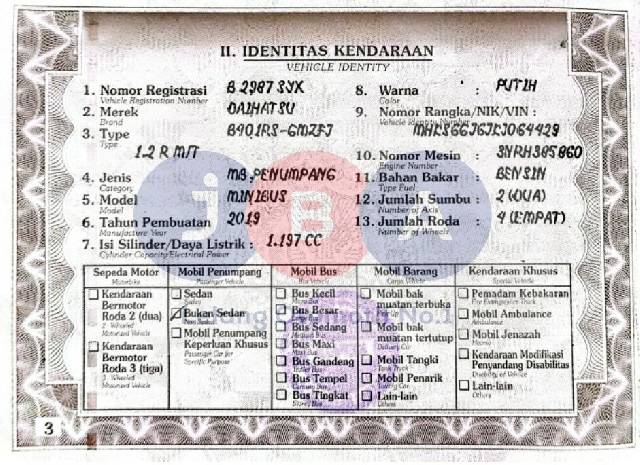 II. IDENTITAS KENDARAAN
VEHICLE IDENTITY
1. Nomor Registrasi B 2987 SYX
Vehicle Registration Number
2. Merek DAIHATSU
Brand
3. Type B401RS-GMZFJ
Type
1.2 R M/T
4. Jenis MB.PENUMPANG
Category
5. Model MINIBUS
Model
6. Tahun Pembuatan 2019
Manufacture Year
7. Isi Silinder/Daya Listrik : 1.197 CC
Cylinder Capacity/Electrical Power
8. Warna : PUTIH
Color
9. Nomor Rangka/NIK/VIN :
Vehicle Identity Number
MHKS6GJ6JKJ064429
10. Nomor Mesin : 3NRH385860
Engine Number
11. Bahan Bakar : BENSIN
Type Fuel
12. Jumlah Sumbu : 2 (DUA)
Number of Axis
13. Jumlah Roda : 4 (EMPAT)
Number of Wheels
JBA
Lelang Otomotif No.1
Sepeda Motor
Motorbike
Kendaraan
Bermotor
Roda 2 (dua)
2 Wheeled
Motorized Vehicle
Kendaraan
Bermotor
Roda 3 (tiga)
3 Wheeled
Motorized Vehicle
Mobil Penumpang
Passenger Vehicle
Sedan
Sedan
Bukan Sedan
Non Sedan
Mobil Penumpang
Keperluan Khusus
Passenger Car for
Specific Purpose
Mobil Bus
Bus Vehicle
Bus Kecil
Bus Besar
Bus Sedang
Bus Maxi
Maxi Bus
Bus Gandeng
Bus Tempel
Bus Tingkat
Mobil Barang
Cargo Vehicle
Mobil bak
muatan terbuka
Mobil bak
muatan tertutup
Mobil Tangki
Mobil Penarik
Lain-lain
Others
Kendaraan Khusus
Special Vehicle
Pemadam Kebakaran
Mobil Ambulance
Ambulance
Mobil Jenazah
Kendaraan Modifikasi
Penyandang Disabilitas
Lain-lain
Others
3